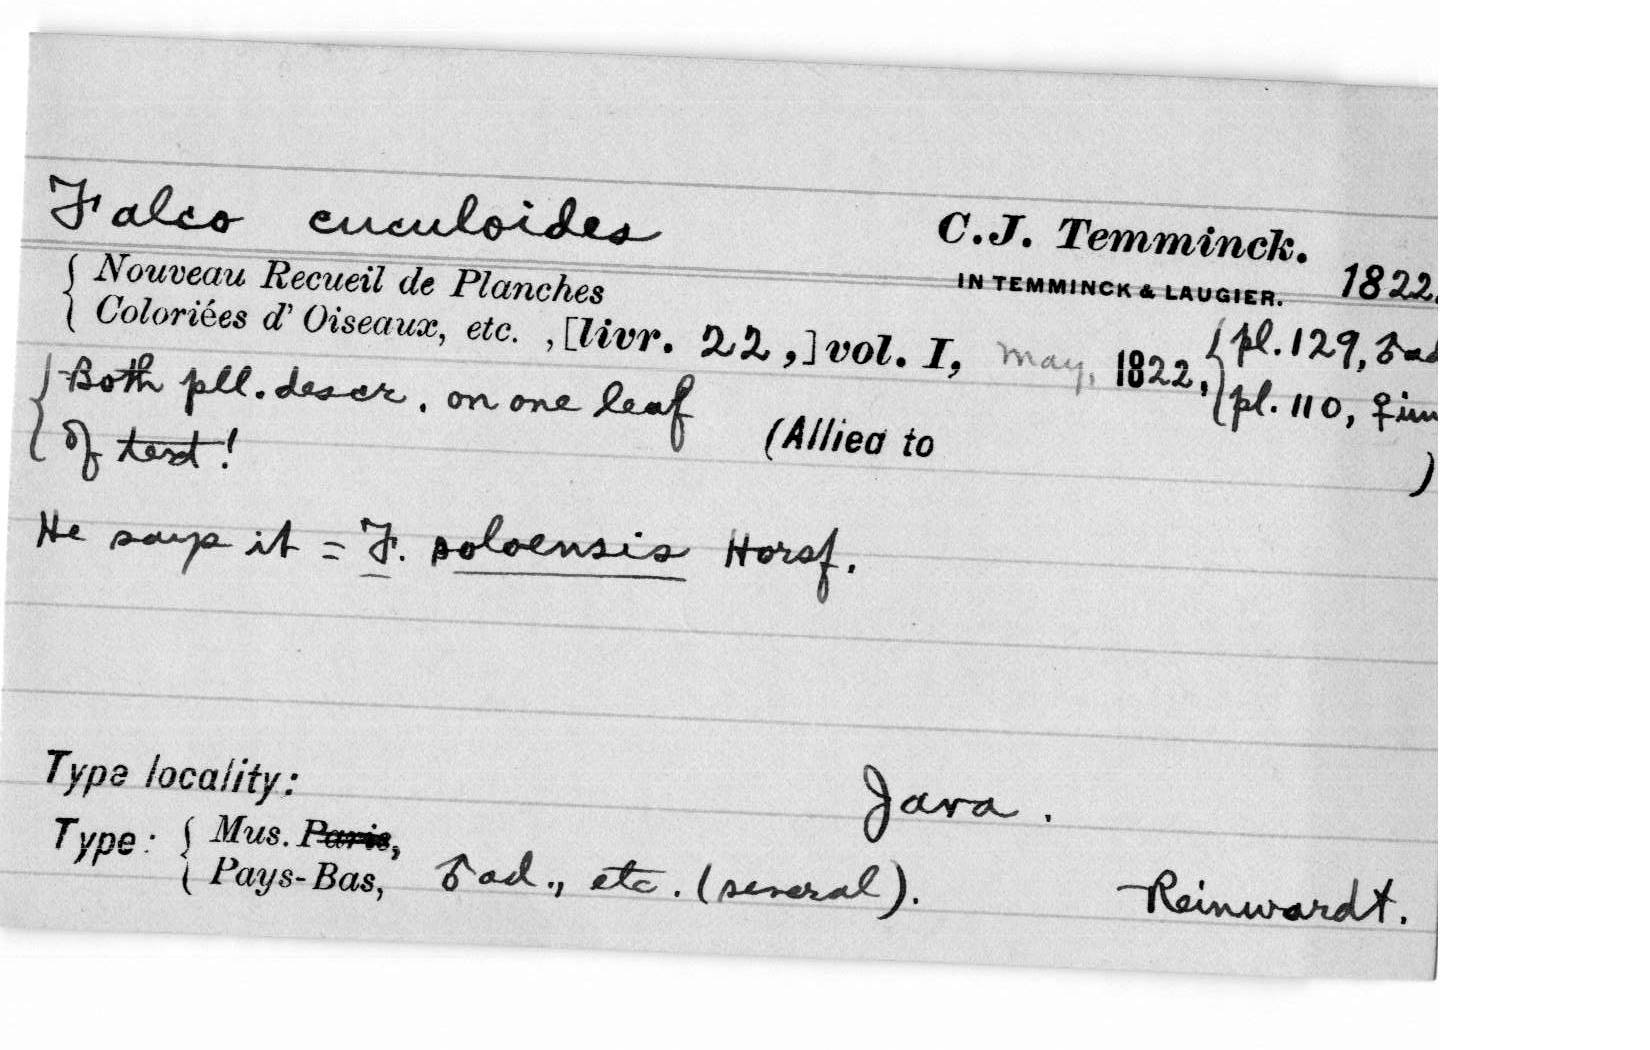 Falco cuculoides C.J. Temminck.
IN TEMMINCK & LAUGIER. 1822.
{ Nouveau Recueil de Planches
Coloriées d' Oiseaux, etc. , [livr. 22,] vol. I, May, 1822, { pl. 129, ♂ ad
pl. 110, ♀ im
{ Both pll. descr. on one leaf
of text! (Allied to )
He says it = F. soloensis Horsf.
Type locality: Java.
Type: { Mus. Paris,
Pays-Bas, ♂ ad., etc. (several). Reinwardt.